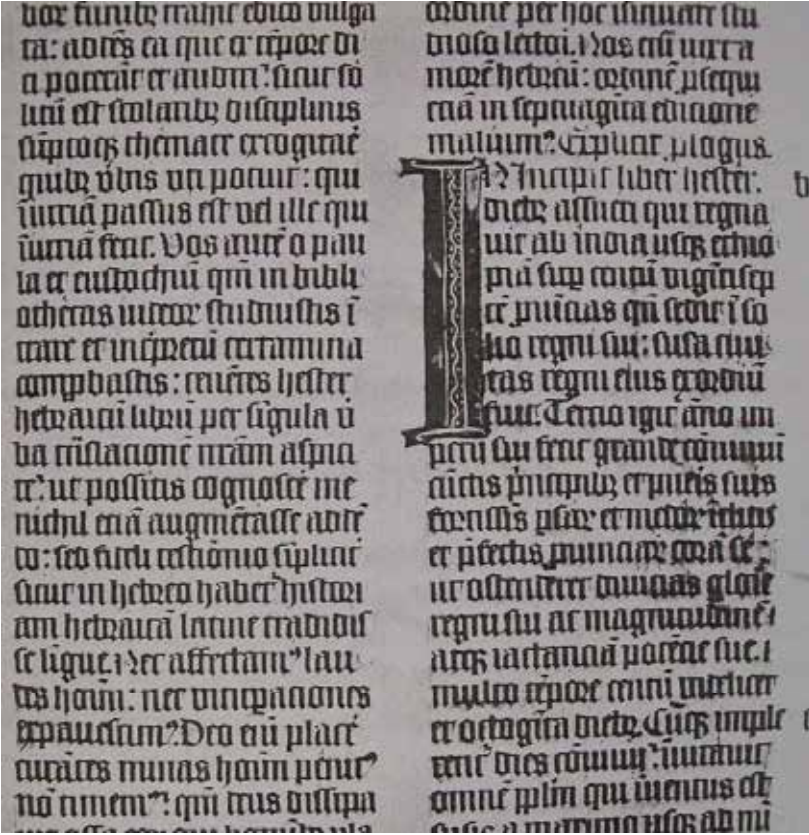 bor funibz trahit edicio vulga
ta: addēs ea que ex tēpore di
ci poterāt et audiri: sicut so
litū est scolaribz disciplinis
sūptoqz themate excogitare
quibz v̄bis uti potuit: qui
iniuriā passus est vel ille qui
iniuriā fecit. Vos autē o pau
la et eustochiū qm̄ in bibli
othecas iudeoꝝ studuistis ī
trare et inṫpretū certamina
comp̄bastis: tenētes hester
hebraicū librū per sīgula v̄
ba trāslacionē nrām aspici
te: ut possitis cognoscē me
nichil etiā augmētasse addē
do: sed fideli testīonio sīplicit̄
sicut in hebreo habet histori
am hebraicā latine tradidis
se ligue. Nec affectamꝰ lau
des hoīm: nec vituꝑaciones
expauescimꝰ. Deo enī placē
curātes minas hoīm penitꝰ
nō timemꝰ: qm̄ deus dissipa
ordine per hoc insinuare stu
dioso lectori. Nos enī iuxta
morē hebreū: ordinē ꝓsequi
etiā in septuagīta edicione
maluimꝰ. Explicit ꝓlogus.
Incipit liber hester.
In diebꝫ assueri qui regna
uit ab india usqꝫ ethio
piā suꝑ centū vigītisep
tē ꝓuīcias qn̄ sedit ī so
lio regni sui: susa ciui
tas regni eius exordiū
fuit. Tercio igit̄ āno im
perii sui fecit grande cōuiuiū
cūctis p̄ncipibꝫ et pueris suis
fortissīs ꝑsaꝝ et medoꝝ īclitis
et p̄fectis ꝓuinciaꝝ corā se:
ut ostenderet diuicias glorie
regni sui ac magnitudinē
atqꝫ iactanciā potēcie sue.
multo tēpore centū videlicet
et octogīta diebꝫ. Cūqꝫ imple
rent̄ dies cōuiuii: inuitauit
omnē pplm qui inuentus est
susis a maximo usqꝫ ad mi